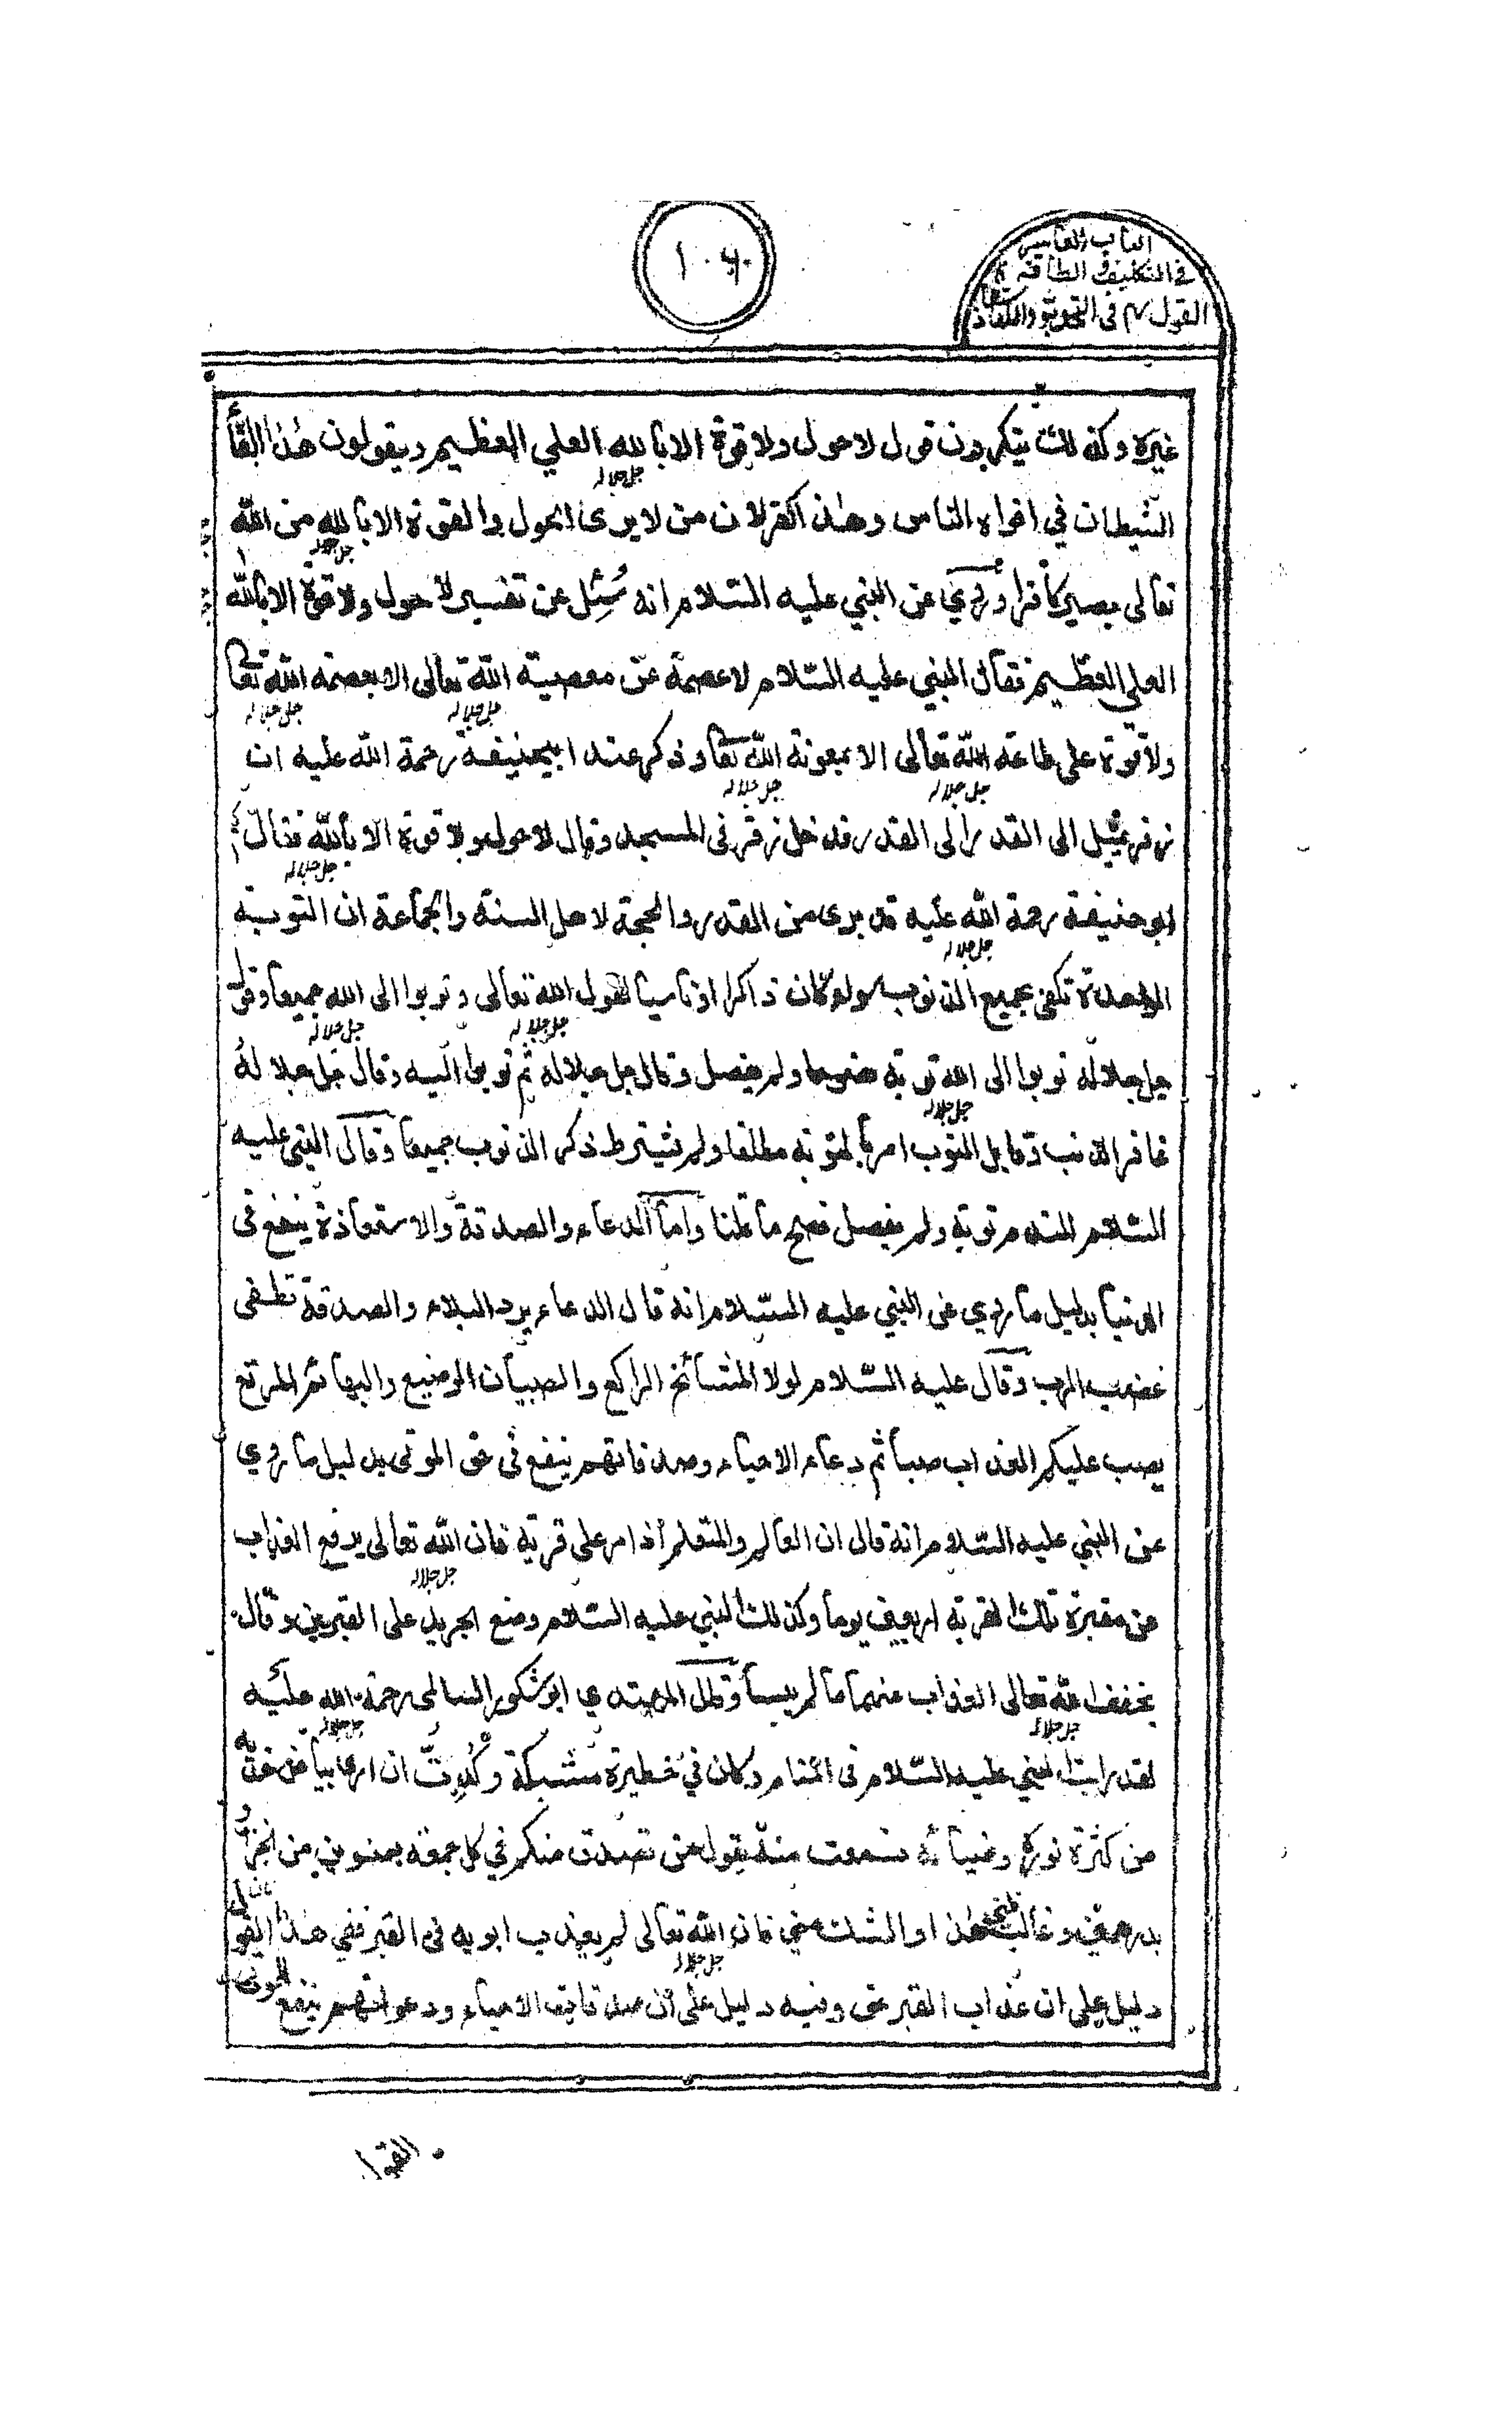 ١٠٦
الباب العاشر
في التكليف والطاقة
القول ٣ في التوبة والكفارة
غيره وكذلك ينكرون قول لا حول ولا قوة الا بالله العلي العظيم ويقولون هذا القأ
الشيطان في افواه الناس وهذا كفر لان من لا يرى الحول والقوة الا بالله من الله
تعالى يصير كافرا وروي عن النبي عليه السلام انه سُئِل عن تفسير لا حول ولا قوة الا بالله
العلي العظيم فقال النبي عليه السلام لا عصمة عن معصية الله تعالى الا بعصمة الله تعا
ولا قوة على طاعة الله تعالى الا بمعونة الله تعا وذكر عند ابيحنيفة رحمة الله عليه ان
زفر يميل الى القدر فدخل زفر في المسجد وقال لا حول ولا قوة الا بالله فقال
ابو حنيفة رحمة الله عليه قد برى من القدر والحجة لاهل السنة والجماعة ان التوبة
الواحدة تكفى بجميع الذنوب سواء كان ذاكرا او ناسيا لقول الله تعالى وتوبوا الى الله جميعا وقو
جل جلاله توبوا الى الله توبة نصوحا ولم يفصل وقال جل جلاله ثم توبوا اليه وقال جل جلاله
غافر الذنب وقابل التوب امر بالتوبة مطلقا ولم يشترط ذكر الذنوب جميعا وقال النبي عليه
السلام الندم توبة ولم يفصل فصح ما قلنا واما الدعاء والصدقة والاستعاذة ينفع في
الدنيا بدليل ما روي عن النبي عليه السلام انه قال الدعاء يرد البلاء والصدقة تطفى
غضب الرب وقال عليه السلام لولا المشائخ الراكع والصبيان الرضيع والبهائم المرتع
يصب عليكم العذاب صبا ثم دعاء الاحياء وصدقاتهم ينفع في حق الموتى بدليل ما روي
عن النبي عليه السلام انه قال ان العالم والمتعلم اذا مر على قرية فان الله تعالى يدفع العذاب
عن مقبرة تلك القرية اربعين يوما وكذلك النبي عليه السلام وضع الجريد على القبرين وقال
يخفف الله تعالى العذاب عنهما ما لم ييبسا وقال المهتدي ابو شكور السالمي رحمة الله عليه
لقد رايت النبي عليه السلام في المنام وكان في حظيرة مشبكة وكُدِتُّ ان
من كثرة نوره وضيائه فسمعت منه يقول من تصدق منكم في كل جمعة بمنوين من الخبز او
بدرهمين فان الله تعالى لم يعذب ابويه في القبر ففي هذا القول
دليل على ان عذاب القبر حق وفيه دليل على ان صدقات الاحياء ودعواتهم ينفع للموتى